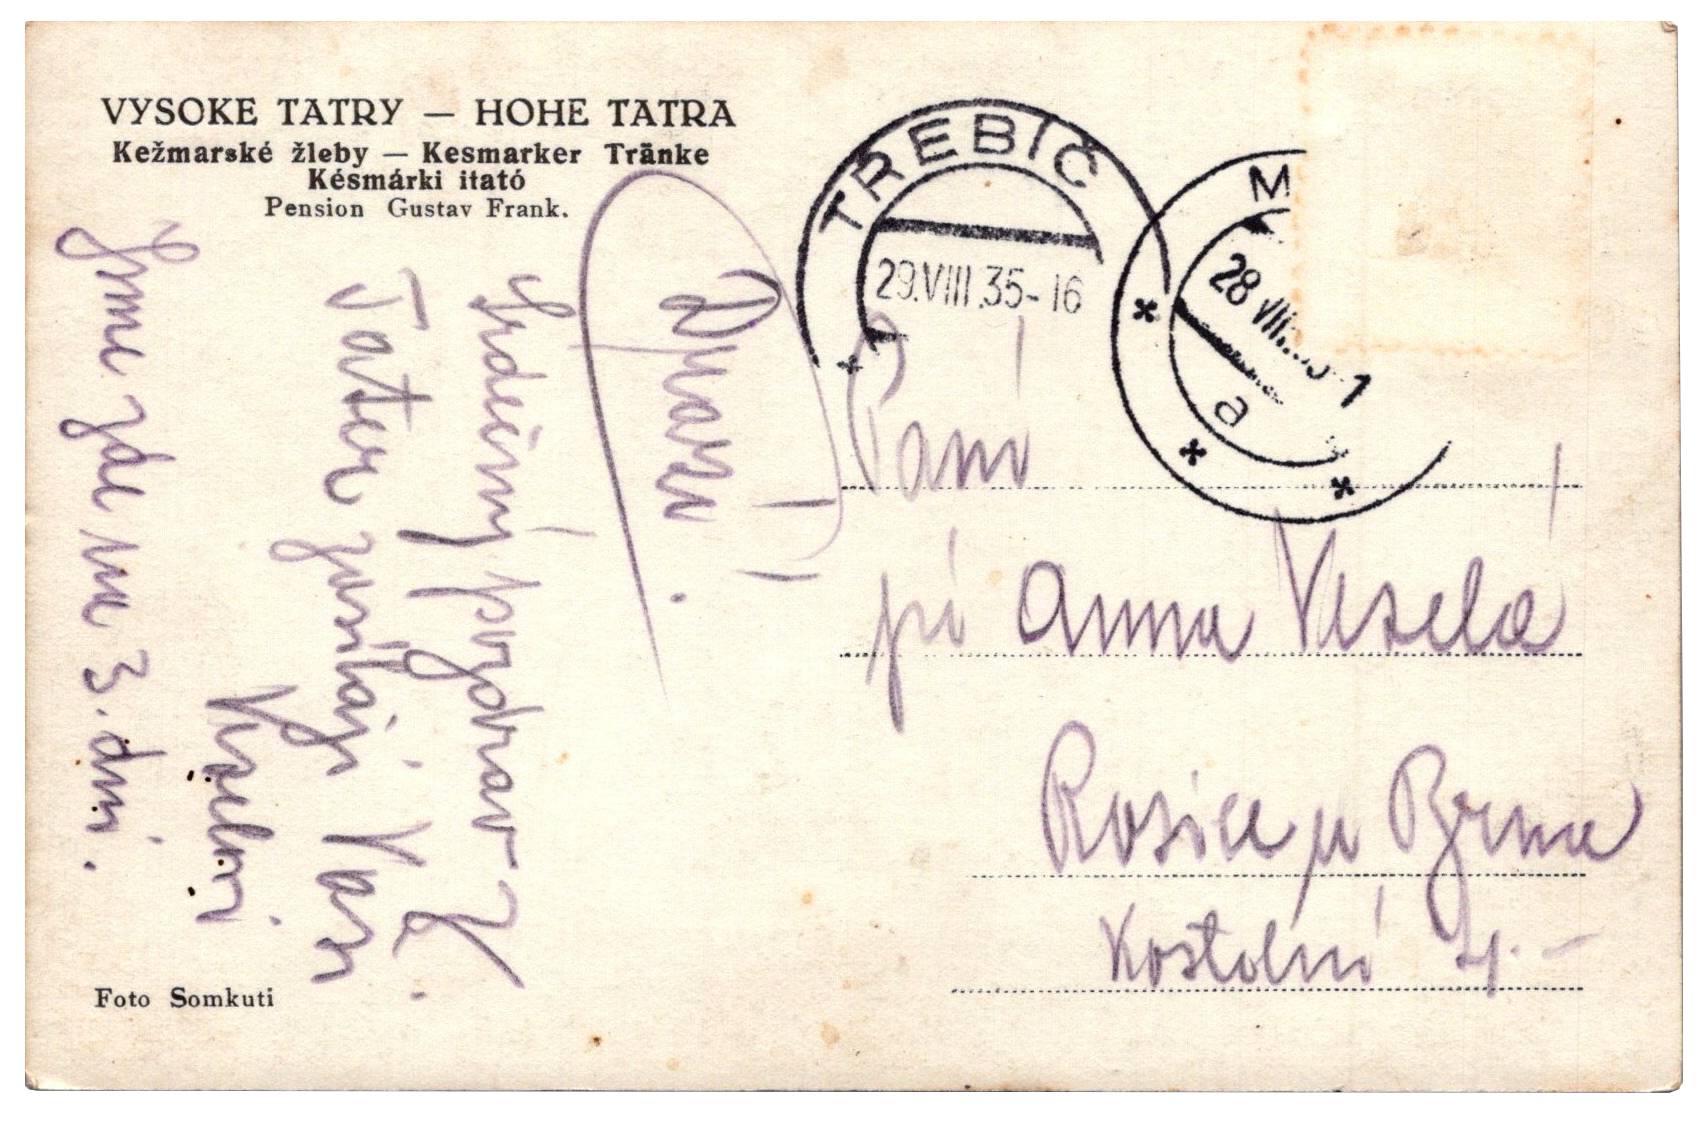 VYSOKE TATRY — HOHE TATRA
Kežmarské žleby — Kesmarker Tränke
Késmárki itató
Pension Gustav Frank.
Drazí.
Srdečný pozdrav z
Tater zasílají Vaši
Veselí
Jsme zde na 3. dni.
Foto Somkuti
TŘEBÍČ
29.VIII.35-16
M
28 VIII
a
Paní
pí Anna Veselá
Rosice u Brna
Kostelní 4.–